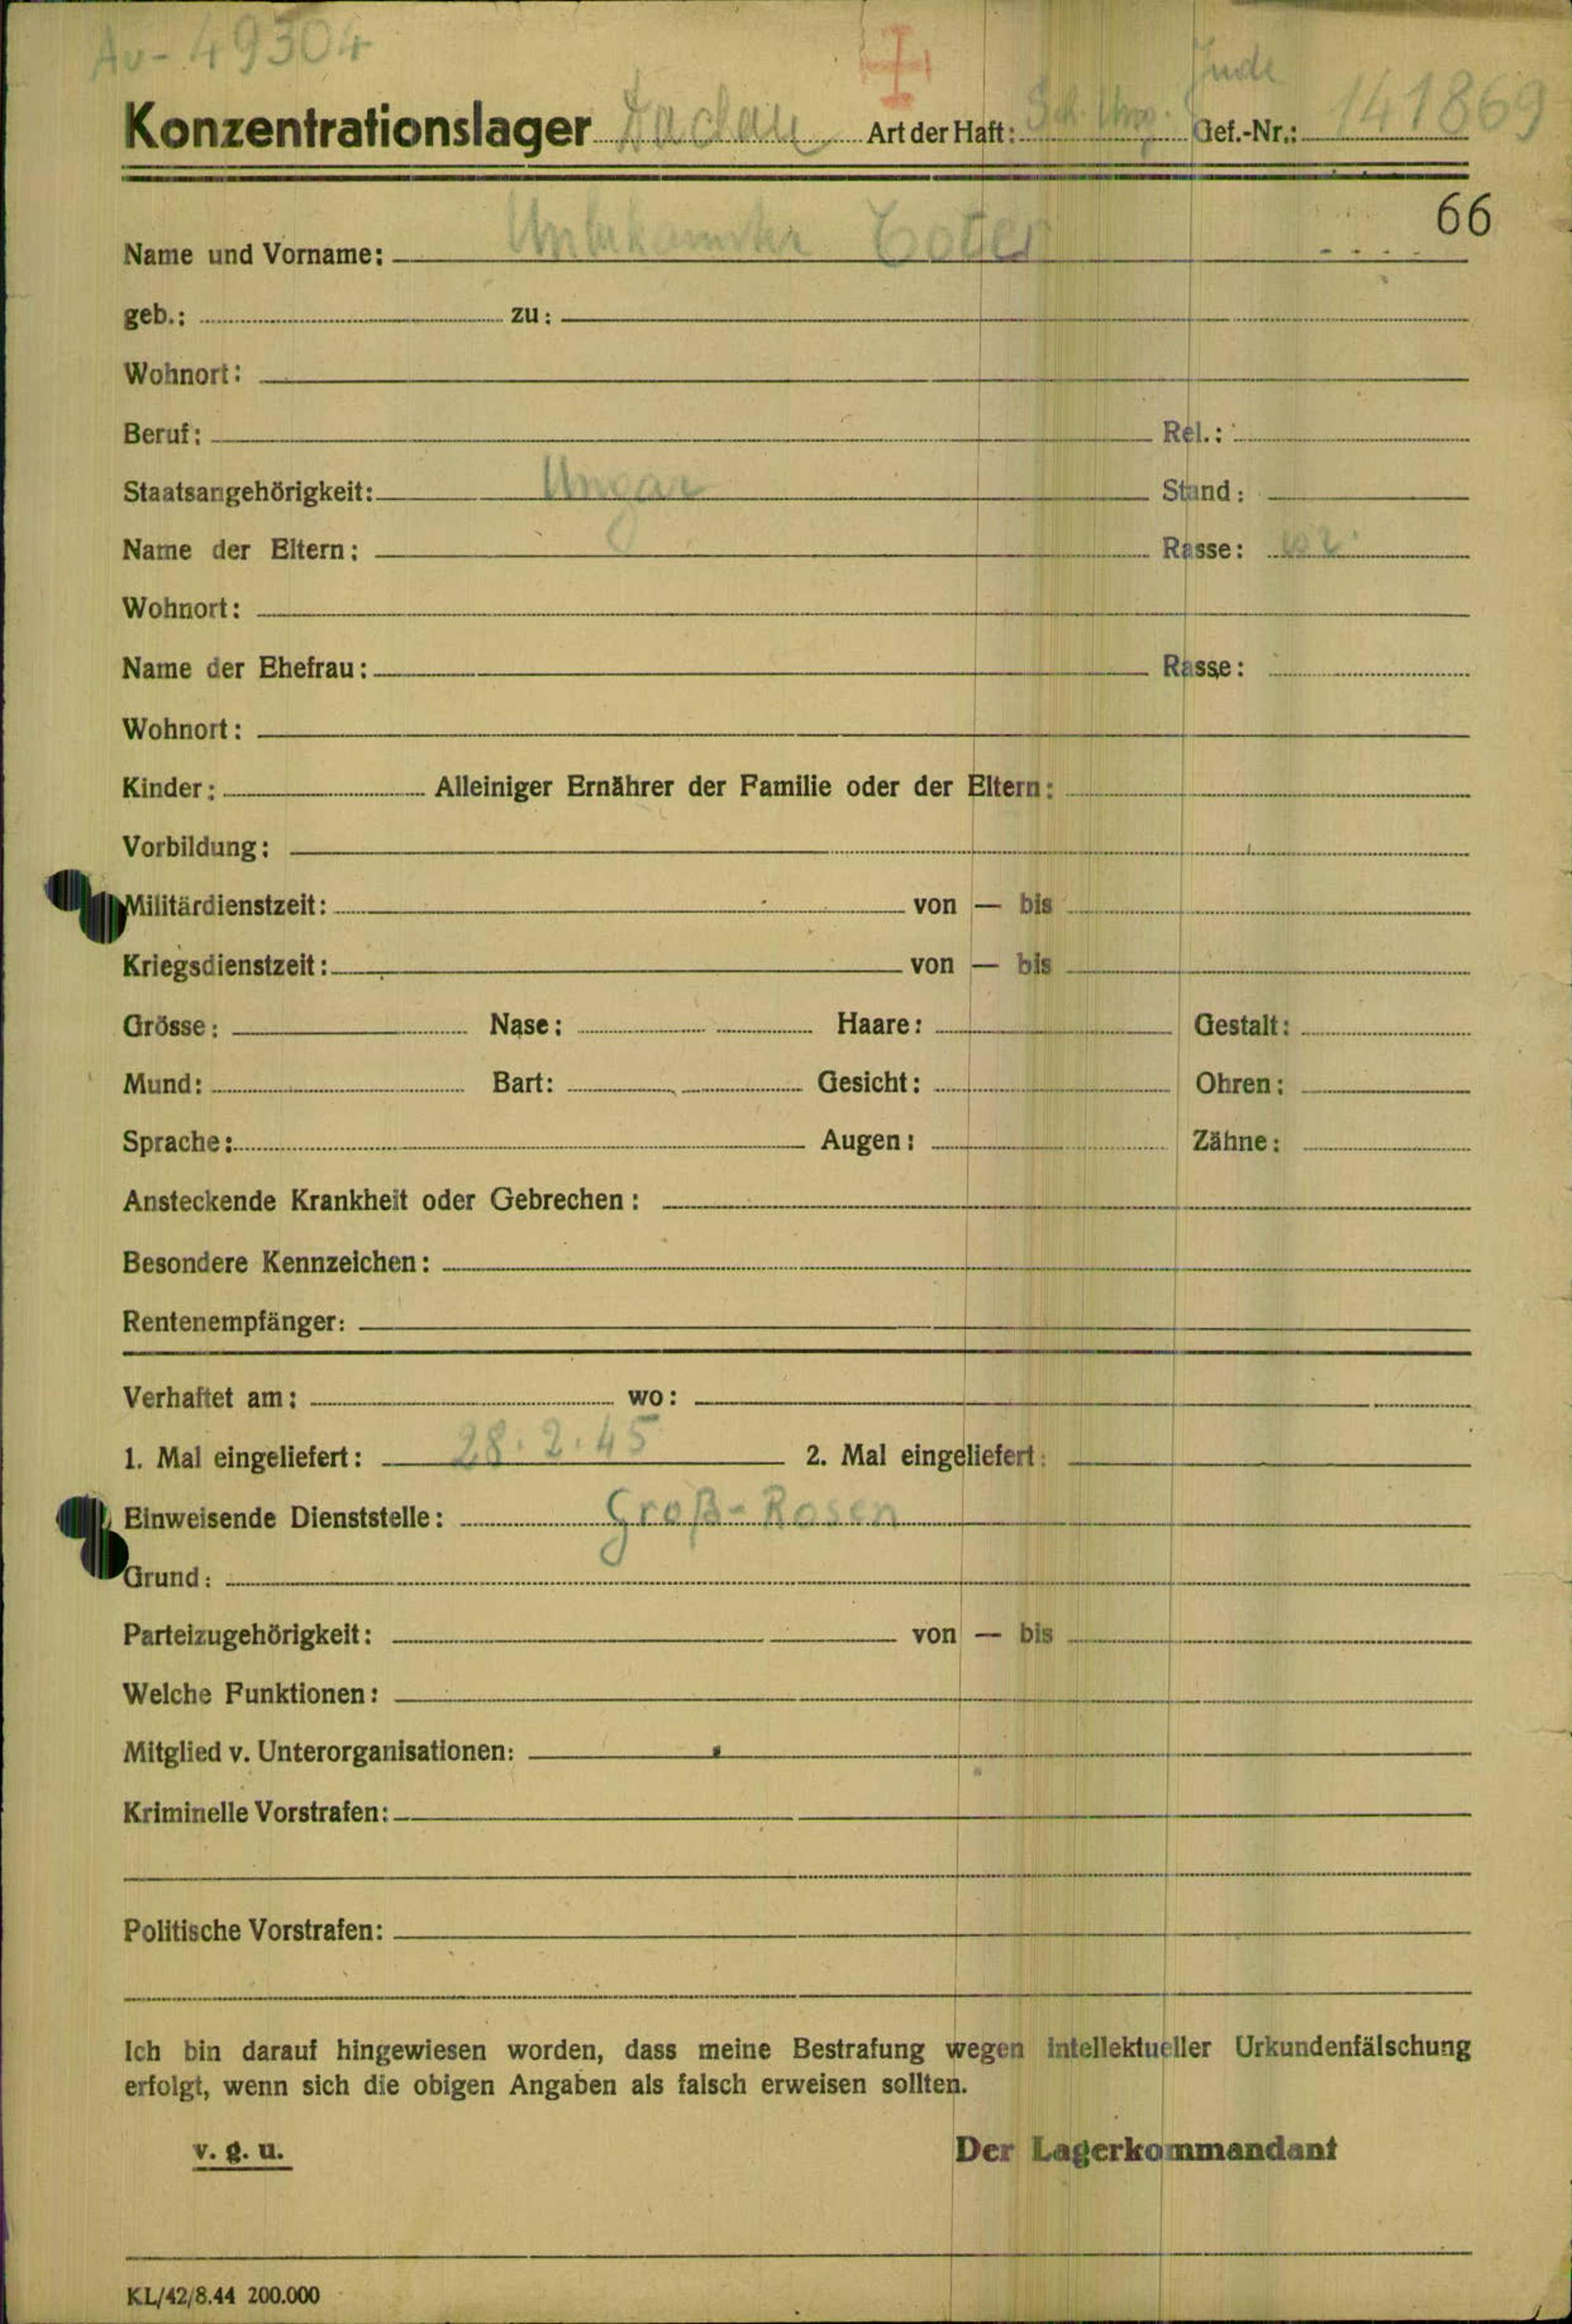 Au-49304
Jude
Konzentrationslager Dachau Art der Haft: Sch. Ung. Gef.-Nr.: 141869
66
Name und Vorname: Unbekannter Toter
geb.: zu:
Wohnort:
Beruf: Rel.:
Staatsangehörigkeit: Ungar Stand:
Name der Eltern: Rasse:
Wohnort:
Name der Ehefrau: Rasse:
Wohnort:
Kinder: Alleiniger Ernährer der Familie oder der Eltern:
Vorbildung:
Militärdienstzeit: von — bis
Kriegsdienstzeit: von — bis
Grösse: Nase: Haare: Gestalt:
Mund: Bart: Gesicht: Ohren:
Sprache: Augen: Zähne:
Ansteckende Krankheit oder Gebrechen:
Besondere Kennzeichen:
Rentenempfänger:
Verhaftet am: wo:
1. Mal eingeliefert: 28.2.45 2. Mal eingeliefert:
Einweisende Dienststelle: Groß-Rosen
Grund:
Parteizugehörigkeit: von — bis
Welche Funktionen:
Mitglied v. Unterorganisationen:
Kriminelle Vorstrafen:
Politische Vorstrafen:
Ich bin darauf hingewiesen worden, dass meine Bestrafung wegen intellektueller Urkundenfälschung
erfolgt, wenn sich die obigen Angaben als falsch erweisen sollten.
v. g. u. Der Lagerkommandant
KL/42/8.44 200.000